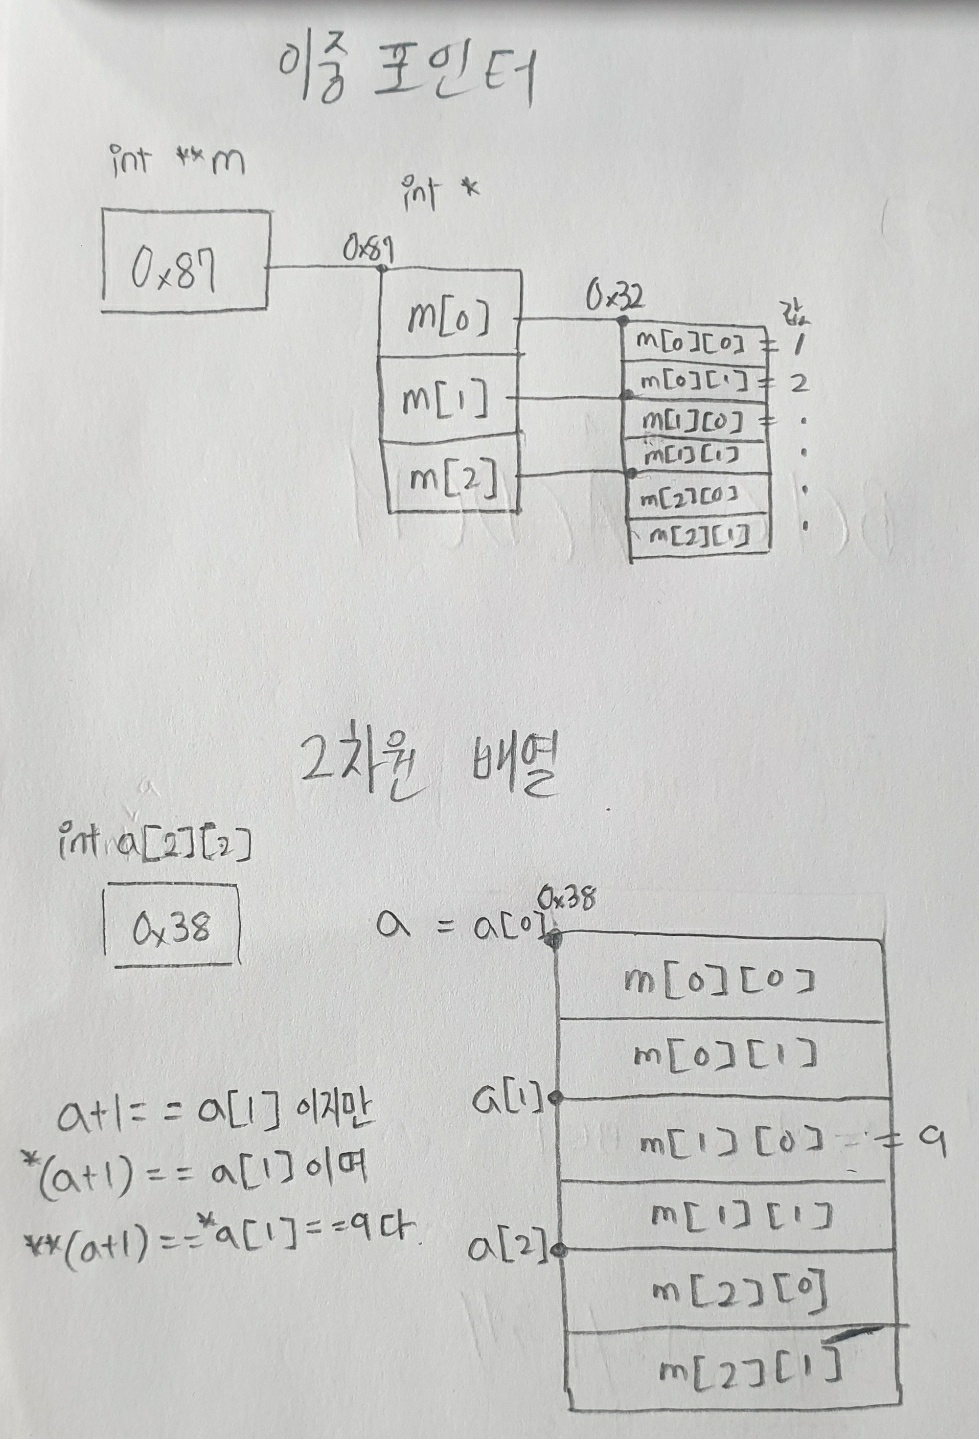 이중 포인터
int **m
int *
0x87
0x87
m[0]
m[1]
m[2]
0x32
값
m[0][0] = 1
m[0][1] = 2
m[1][0] = .
m[1][1] .
m[2][0] .
m[2][1] .
2차원 배열
a
int a[2][2]
0x38
a = a[0]
0x38
m[0][0]
m[0][1]
a[1]
m[1][0] = 9
m[1][1]
a[2]
m[2][0]
m[2][1]
a+1== a[1] 이지만
*(a+1)== a[1]이며
**(a+1)==*a[1]==9다.